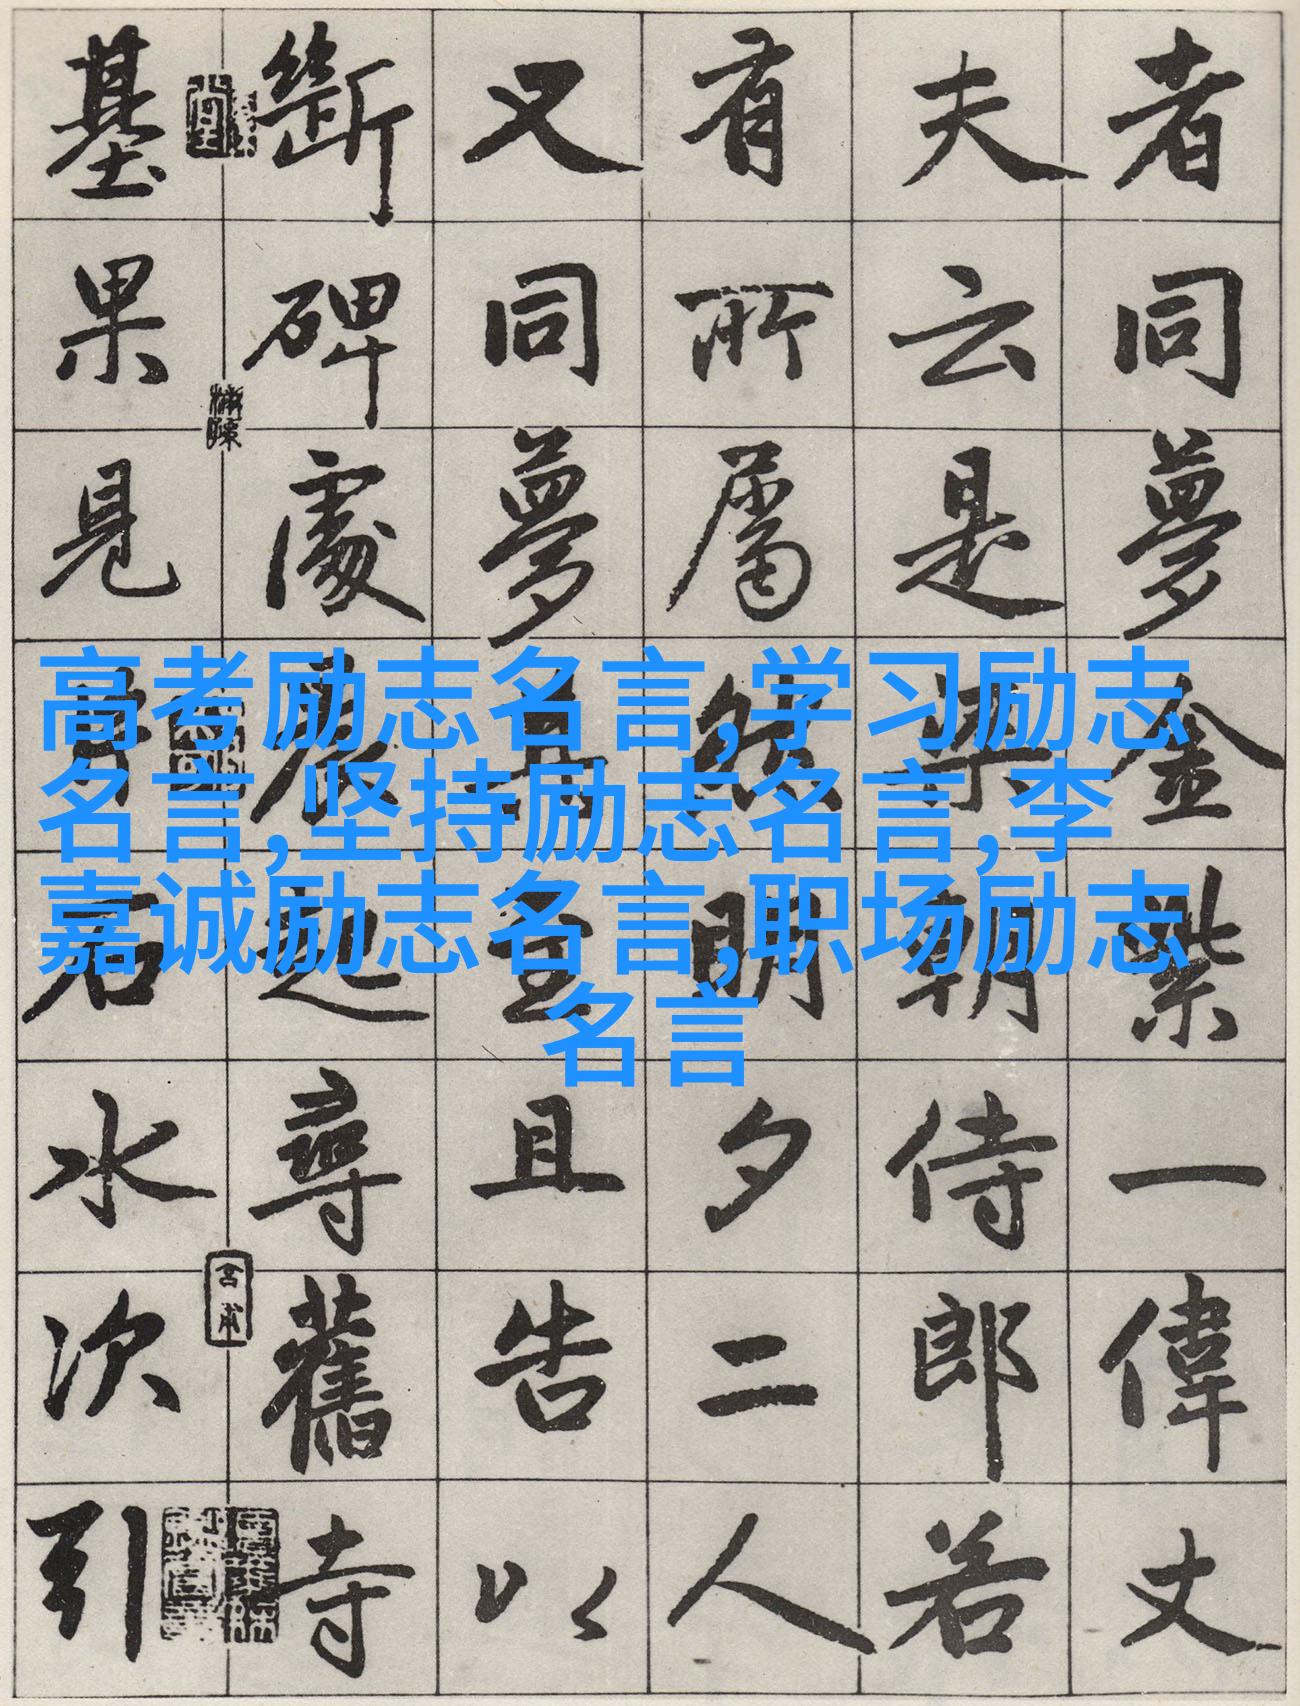 者同夢金紫一偉丈
夫云是梁朝侍郎若
有所屬明夕二人
又同夢且告以
斷碑處晨起尋舊寺
基果見石水次引
高考励志名言,学习励志
名言,坚持励志名言,李
嘉诚励志名言,职场励志
名言